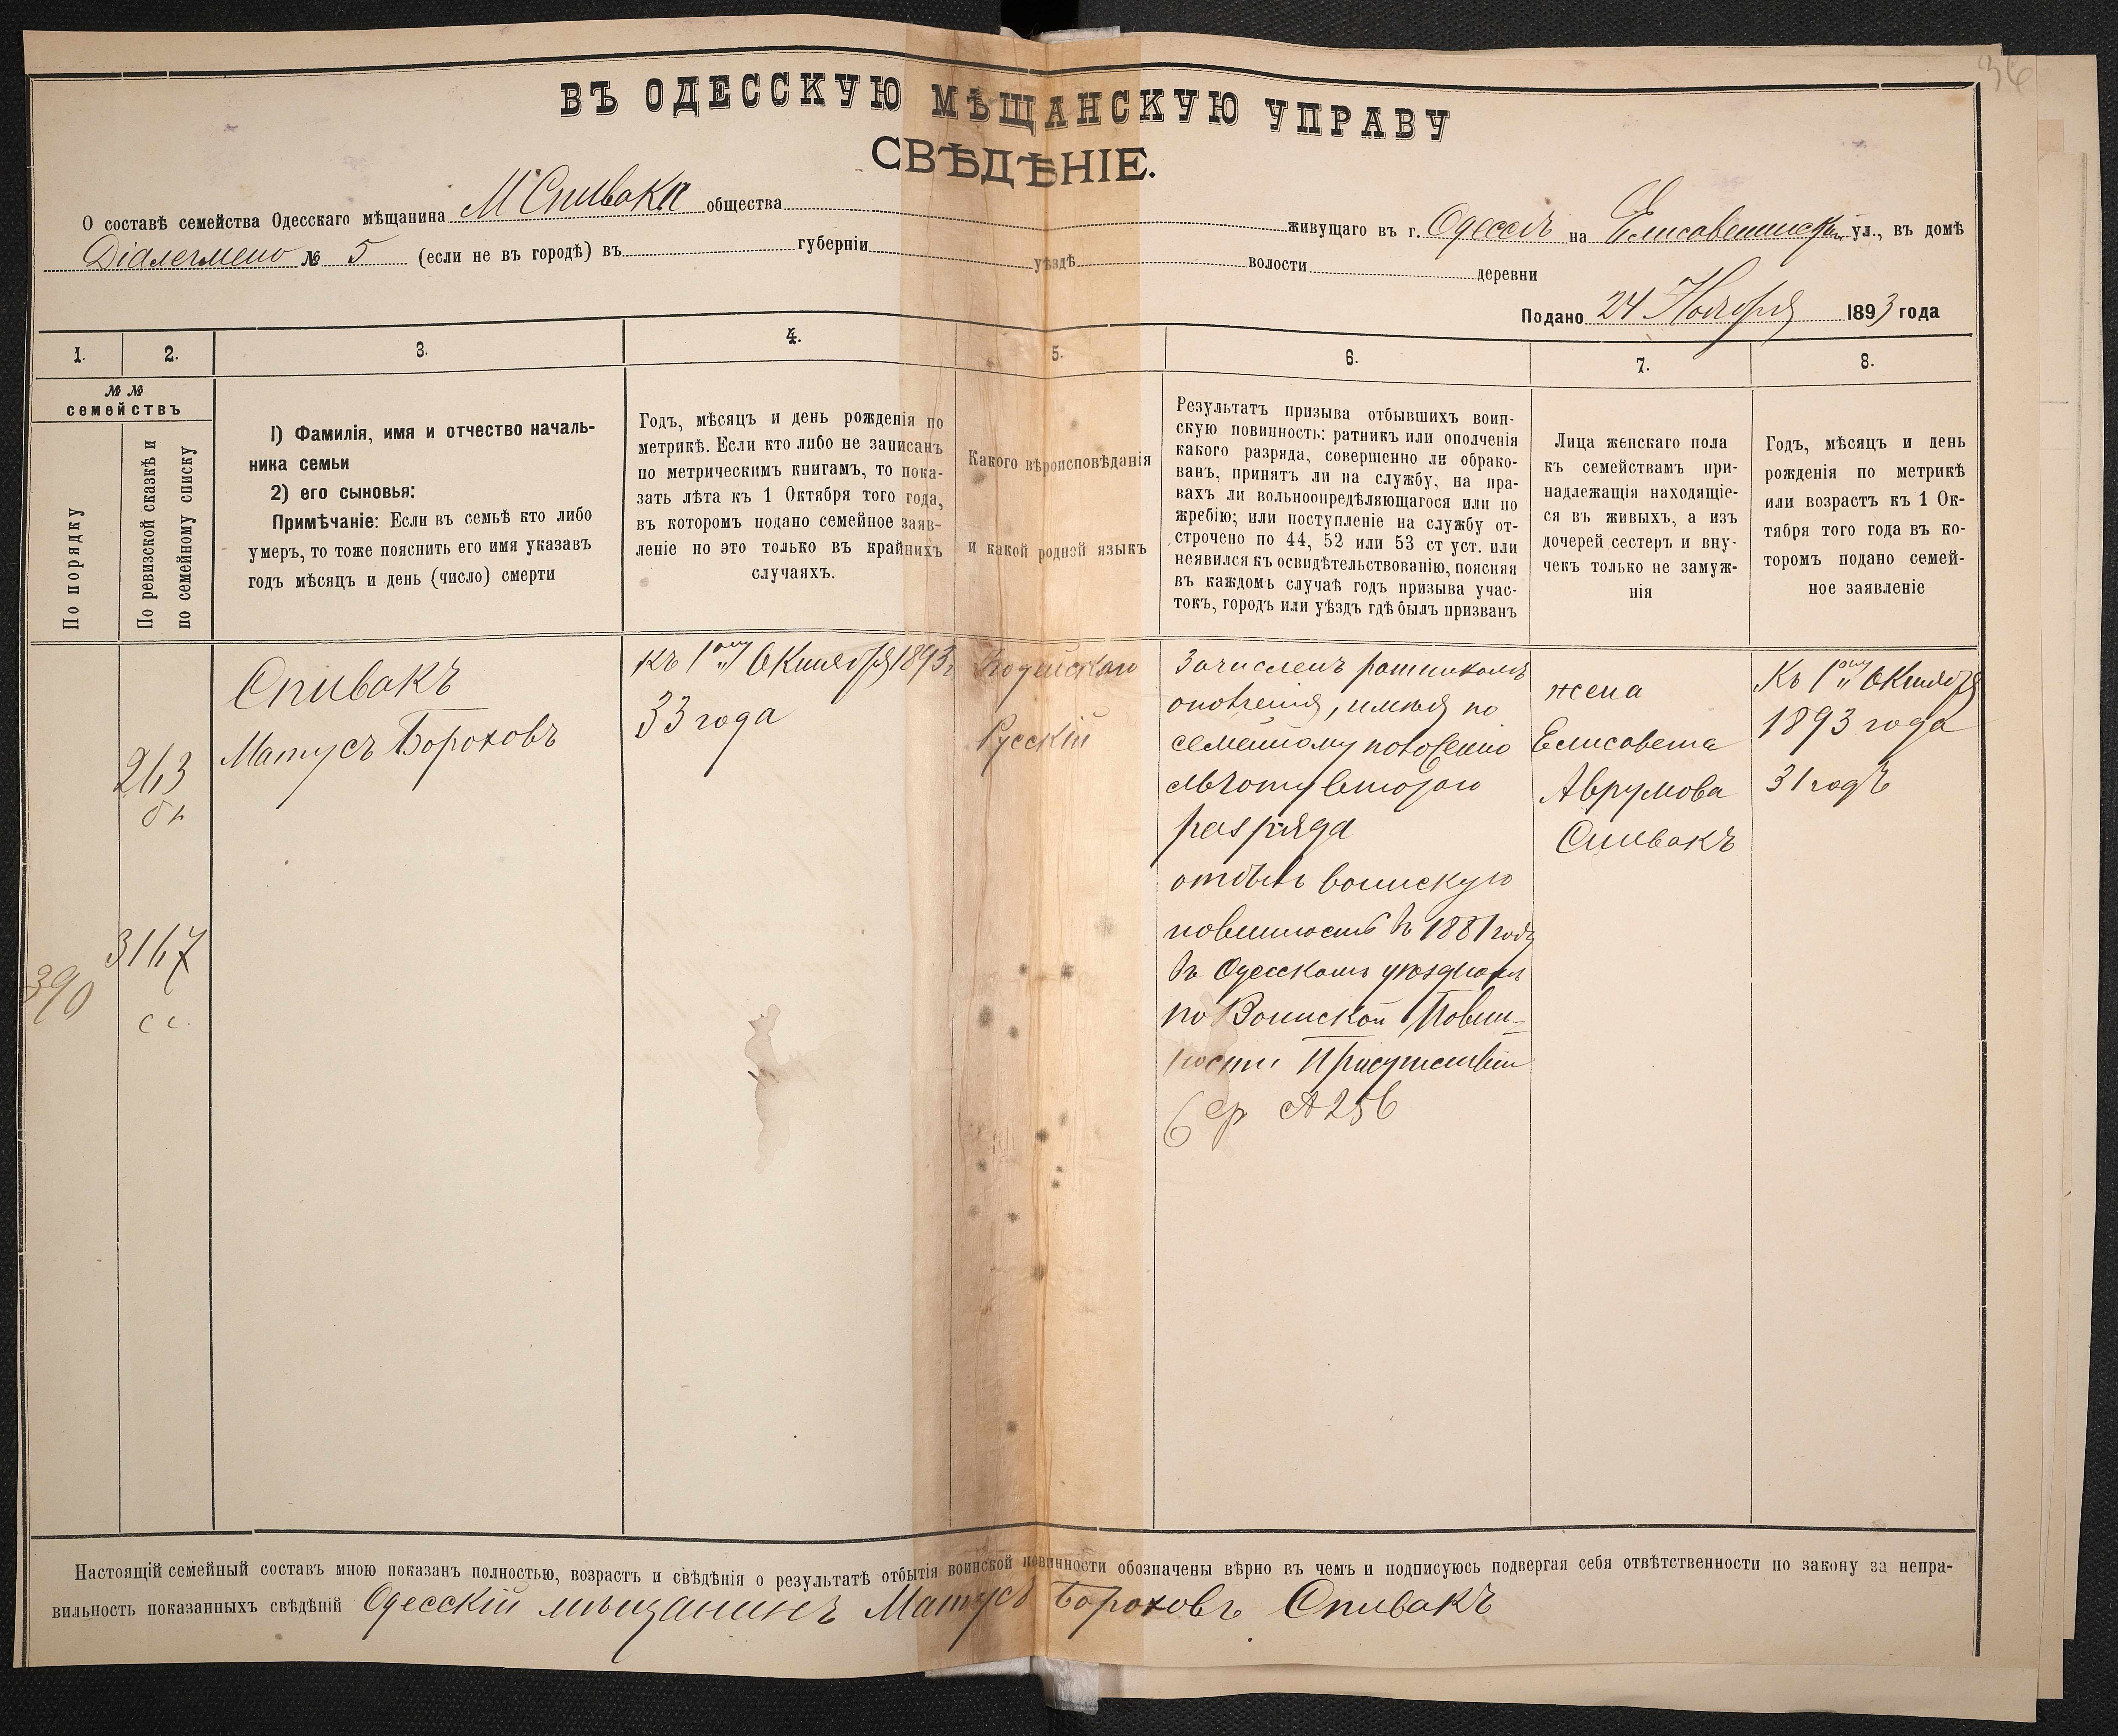 36
ВЪ ОДЕССКУЮ МѢЩАНСКУЮ УПРАВУ
СВѢДѢНІЕ.
О составѣ семейства Одесскаго мѣщанина М Спивака общества живущаго въ г. Одессѣ на Елисаветинской ул., въ домѣ
№ 5 (если не въ городѣ) въ губерніи уѣздѣ волости деревни
Подано 24 Ноября 1893 года
1. 2. 3. 4. 5. 6. 7. 8.
№ №
семействъ
По порядку
По ревизской сказкѣ и
по семейному списку
1) Фамилія, имя и отчество началь-
ника семьи
2) его сыновья:
Примѣчаніе: Если въ семьѣ кто либо
умеръ, то тоже пояснить его имя указавъ
годъ мѣсяцъ и день (число) смерти
Годъ, мѣсяцъ и день рожденія по
метрикѣ. Если кто либо не записанъ
по метрическимъ книгамъ, то пока-
зать лѣта къ 1 Октября того года,
въ которомъ подано семейное заяв-
леніе но это только въ крайнихъ
случаяхъ.
Какого вѣроисповѣданія
и какой родной языкъ
Результатъ призыва отбывшихъ воин-
скую повинность: ратникъ или ополченія
какого разряда, совершенно ли обрако-
ванъ, принятъ ли на службу, на пра-
вахъ ли вольноопредѣляющагося или по
жребію; или поступленіе на службу от-
строчено по 44, 52 или 53 ст уст. или
неявился къ освидѣтельствованію, поясняя
въ каждомъ случаѣ годъ призыва учас-
токъ, городъ или уѣздъ гдѣ былъ призванъ
Лица женскаго пола
къ семействамъ при-
надлежащія находящіе-
ся въ живыхъ, а изъ
дочерей сестеръ и вну-
чекъ только не замуж-
нія
Годъ, мѣсяцъ и день
рожденія по метрикѣ
или возрастъ къ 1 Ок-
тября того года въ ко-
торомъ подано семей-
ное заявленіе
390
263
3167
с с.
Спивакъ
Матусъ Бороховъ
къ 1ому Октября 1893 г
33 года
Іюдейскаго
Русскій
Зачисленъ ратникомъ
ополченія, имѣя по
семейному положенію
льготу втораго
разряда
отбылъ воинскую
повинность въ 1881 году
въ Одесскомъ уѣздномъ
по Воинской Повин-
ности Присутствіи
жена
Елисавета
Аврумова
Спивакъ
Къ 1ому Октября
1893 года
31 годъ
Настоящій семейный составъ мною показанъ полностью, возрастъ и свѣдѣнія о результатѣ отбытія воинской повинности обозначены вѣрно въ чемъ и подписуюсь подвергая себя отвѣтственности по закону за непра-
вильность показанныхъ свѣдѣній Одесскій мѣщанинъ Матусъ Бороховъ Спивакъ